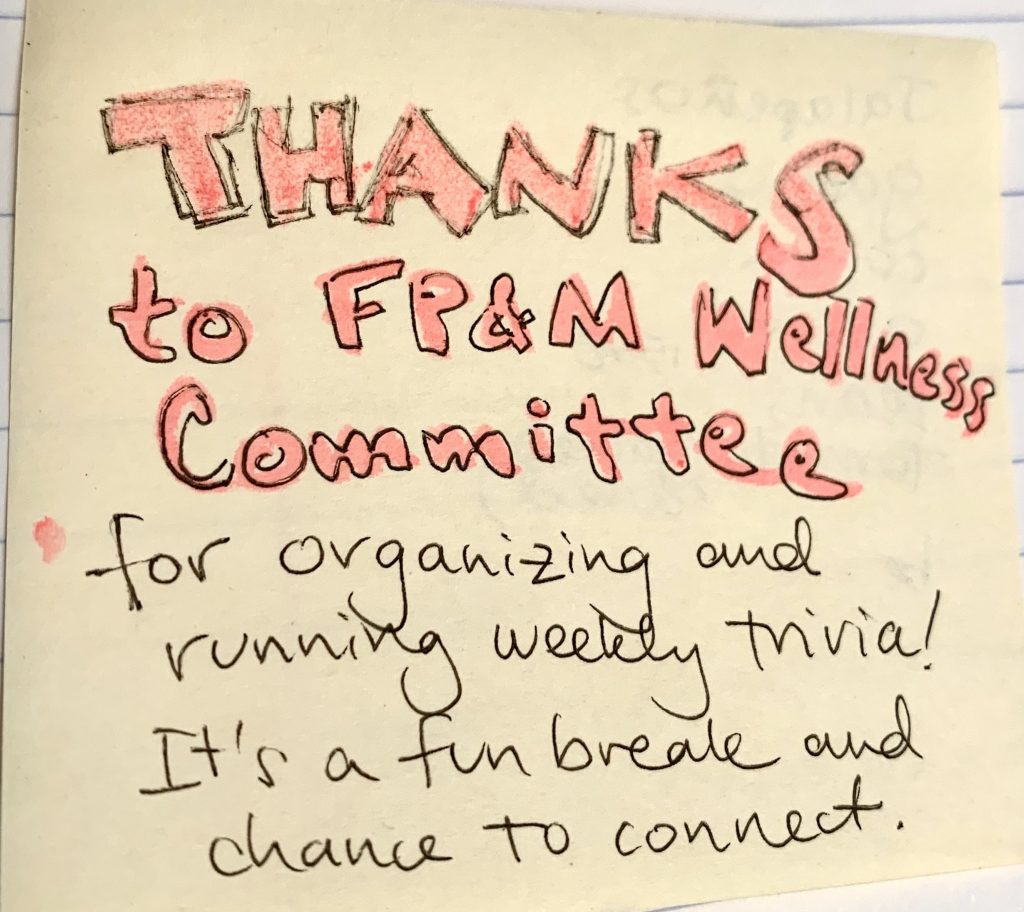 THANKS
to FP&M Wellness
Committee
for organizing and
running weekly trivia!
It's a fun break and
chance to connect.
Jalapeños